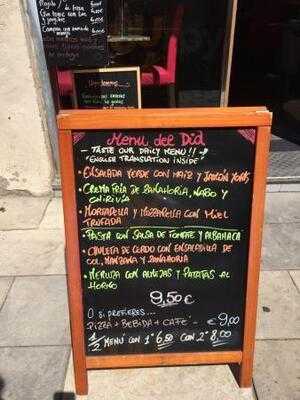 Menu del Dia
- TASTE OUR DAILY MENU!! -
"ENGLISH TRANSLATION INSIDE"
- ENSALADA VERDE CON MAIZ Y JAMÓN YORK
- CREMA FRÍA DE ZANAHORIA, NABO Y
CHIRIVÍA
- MORTADELLA Y MOZZARELLA CON MIEL
TRUFADA
- PASTA CON SALSA DE TOMATE Y ALBAHACA
- CHULETA DE CERDO CON ENSALADILLA DE
COL, MANZANA Y ZANAHORIA
- MERLUZA CON ALMEJAS Y PATATAS AL
HORNO
9,50€
O SI PREFIERES...
PIZZA + BEBIDA + CAFÉ - €9,00
1/2 MENÚ CON 1º 6,50 CON 2º 8,00